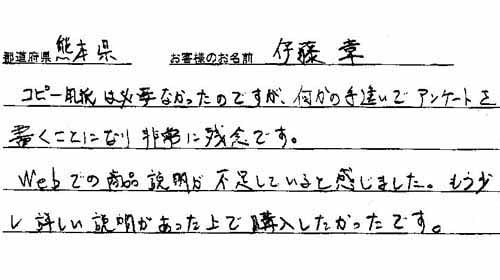 都道府県 熊本県 お客様のお名前 伊藤 章
コピー用紙は必要なかったのですが、何かの手違いでアンケートを
書くことになり非常に残念です。
Webでの商品説明が不足していると感じました。もう少
し詳しい説明があった上で購入したかったです。